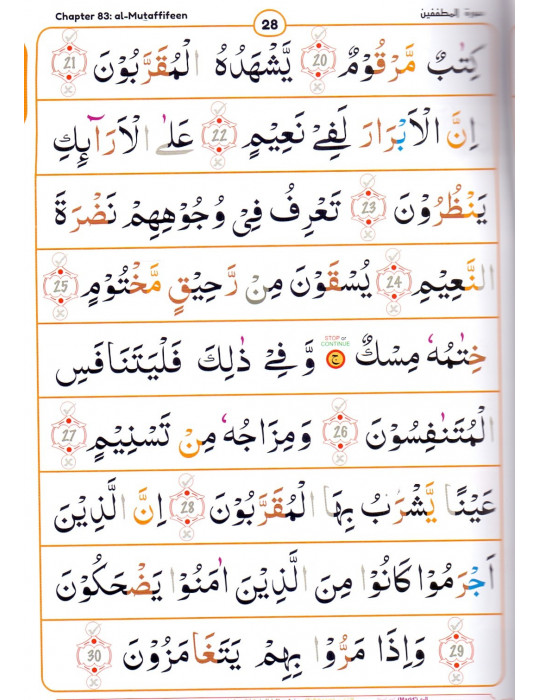 Chapter 83: al-Mutaffifeen 28 سورة المطففين
كِتٰبٌ مَّرْقُوْمٌ 20 يَّشْهَدُهُ الْمُقَرَّبُوْنَ 21
اِنَّ الْاَبْرَارَ لَفِيْ نَعِيْمٍ 22 عَلَى الْاَرَآئِكِ
يَنْظُرُوْنَ 23 تَعْرِفُ فِيْ وُجُوْهِهِمْ نَضْرَةَ
النَّعِيْمِ 24 يُسْقَوْنَ مِنْ رَّحِيْقٍ مَّخْتُوْمٍ 25
خِتٰمُهٗ مِسْكٌ ج STOP or CONTINUE وَ فِيْ ذٰلِكَ فَلْيَتَنَافَسِ
الْمُتَنٰفِسُوْنَ 26 وَمِزَاجُهٗ مِنْ تَسْنِيْمٍ 27
عَيْنًا يَّشْرَبُ بِهَا الْمُقَرَّبُوْنَ 28 اِنَّ الَّذِيْنَ
اَجْرَمُوْا كَانُوْا مِنَ الَّذِيْنَ اٰمَنُوْا يَضْحَكُوْنَ
29 وَاِذَا مَرُّوْا بِهِمْ يَتَغَامَزُوْنَ 30